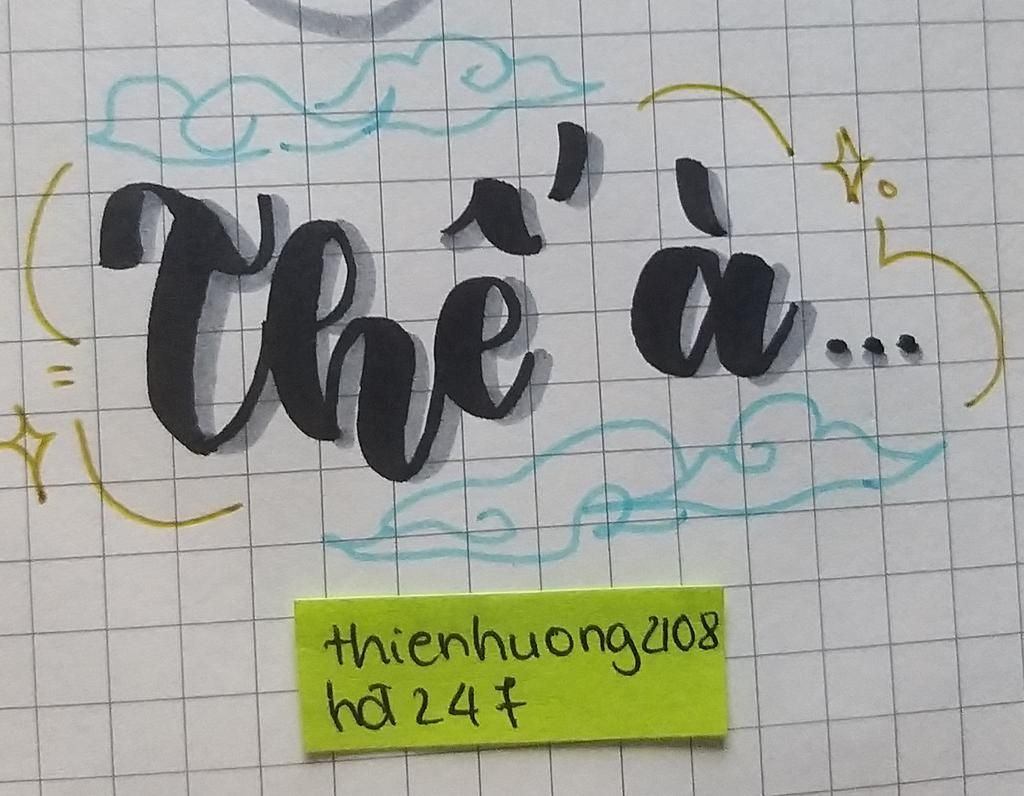 Thế à...
thienhuong2108
hđ 247